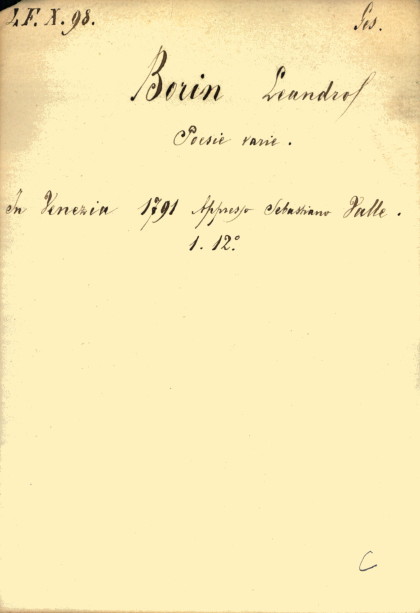 I.F.X.98. Ges.
Borin Leandro
Poesie varie.
In Venezia 1791 Appresso Sebastiano Valle.
1. 12°
C